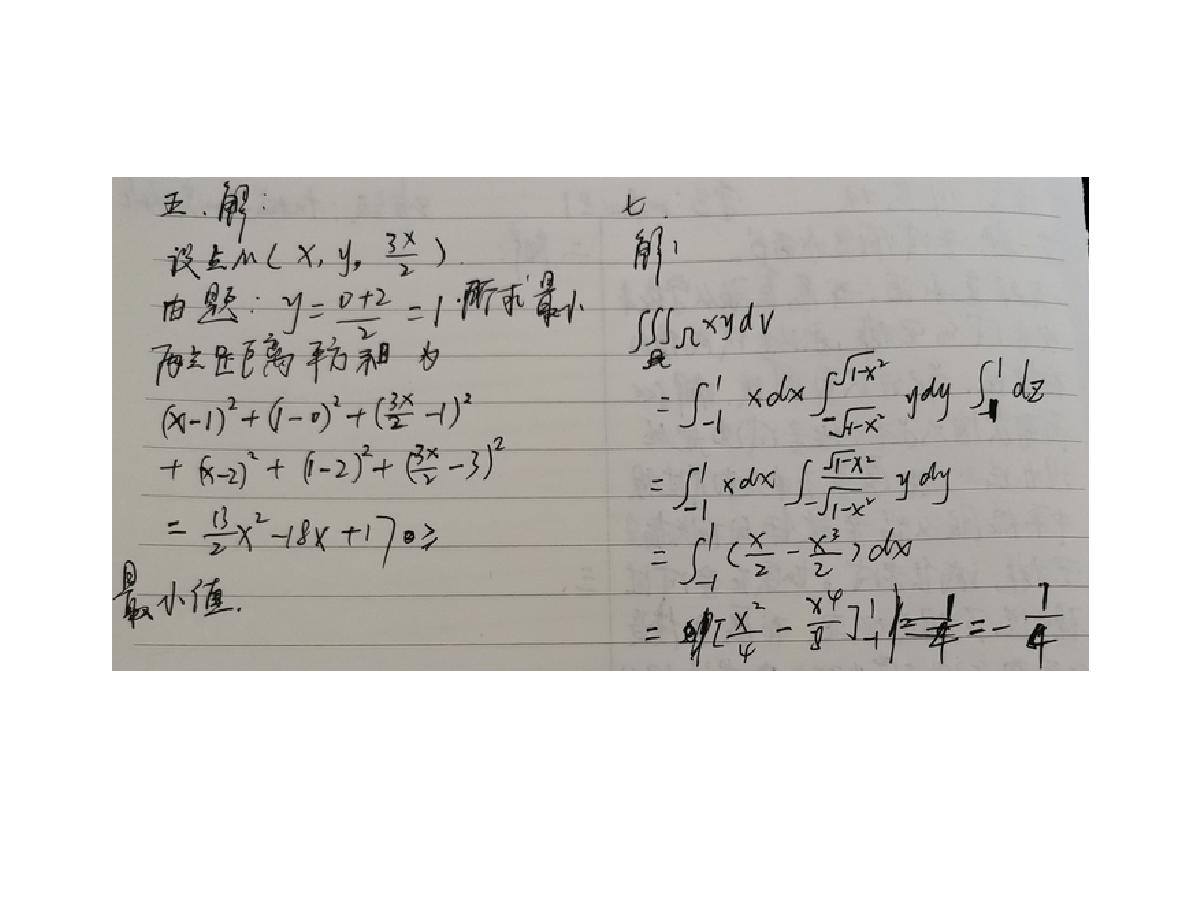 五.解:
设点M(x, y, 3x/2).
由题: y = (0+2)/2 = 1. 所求最小
两点距离平方和为
(x-1)² + (1-0)² + (3x/2 - 1)²
+ (x-2)² + (1-2)² + (3x/2 - 3)²
= 13/2 x² - 18x + 17 ≥
最小值.
七.
解:
∭Ω xydv
= ∫₋₁¹ xdx ∫_{-√(1-x²)}^{√(1-x²)} ydy ∫ ¹ dz
= ∫₋₁¹ xdx ∫_{-√(1-x²)}^{√(1-x²)} ydy
= ∫₋₁¹ (x/2 - x³/2) dx
= [x²/4 - x⁴/8]₋₁¹ = -1/4